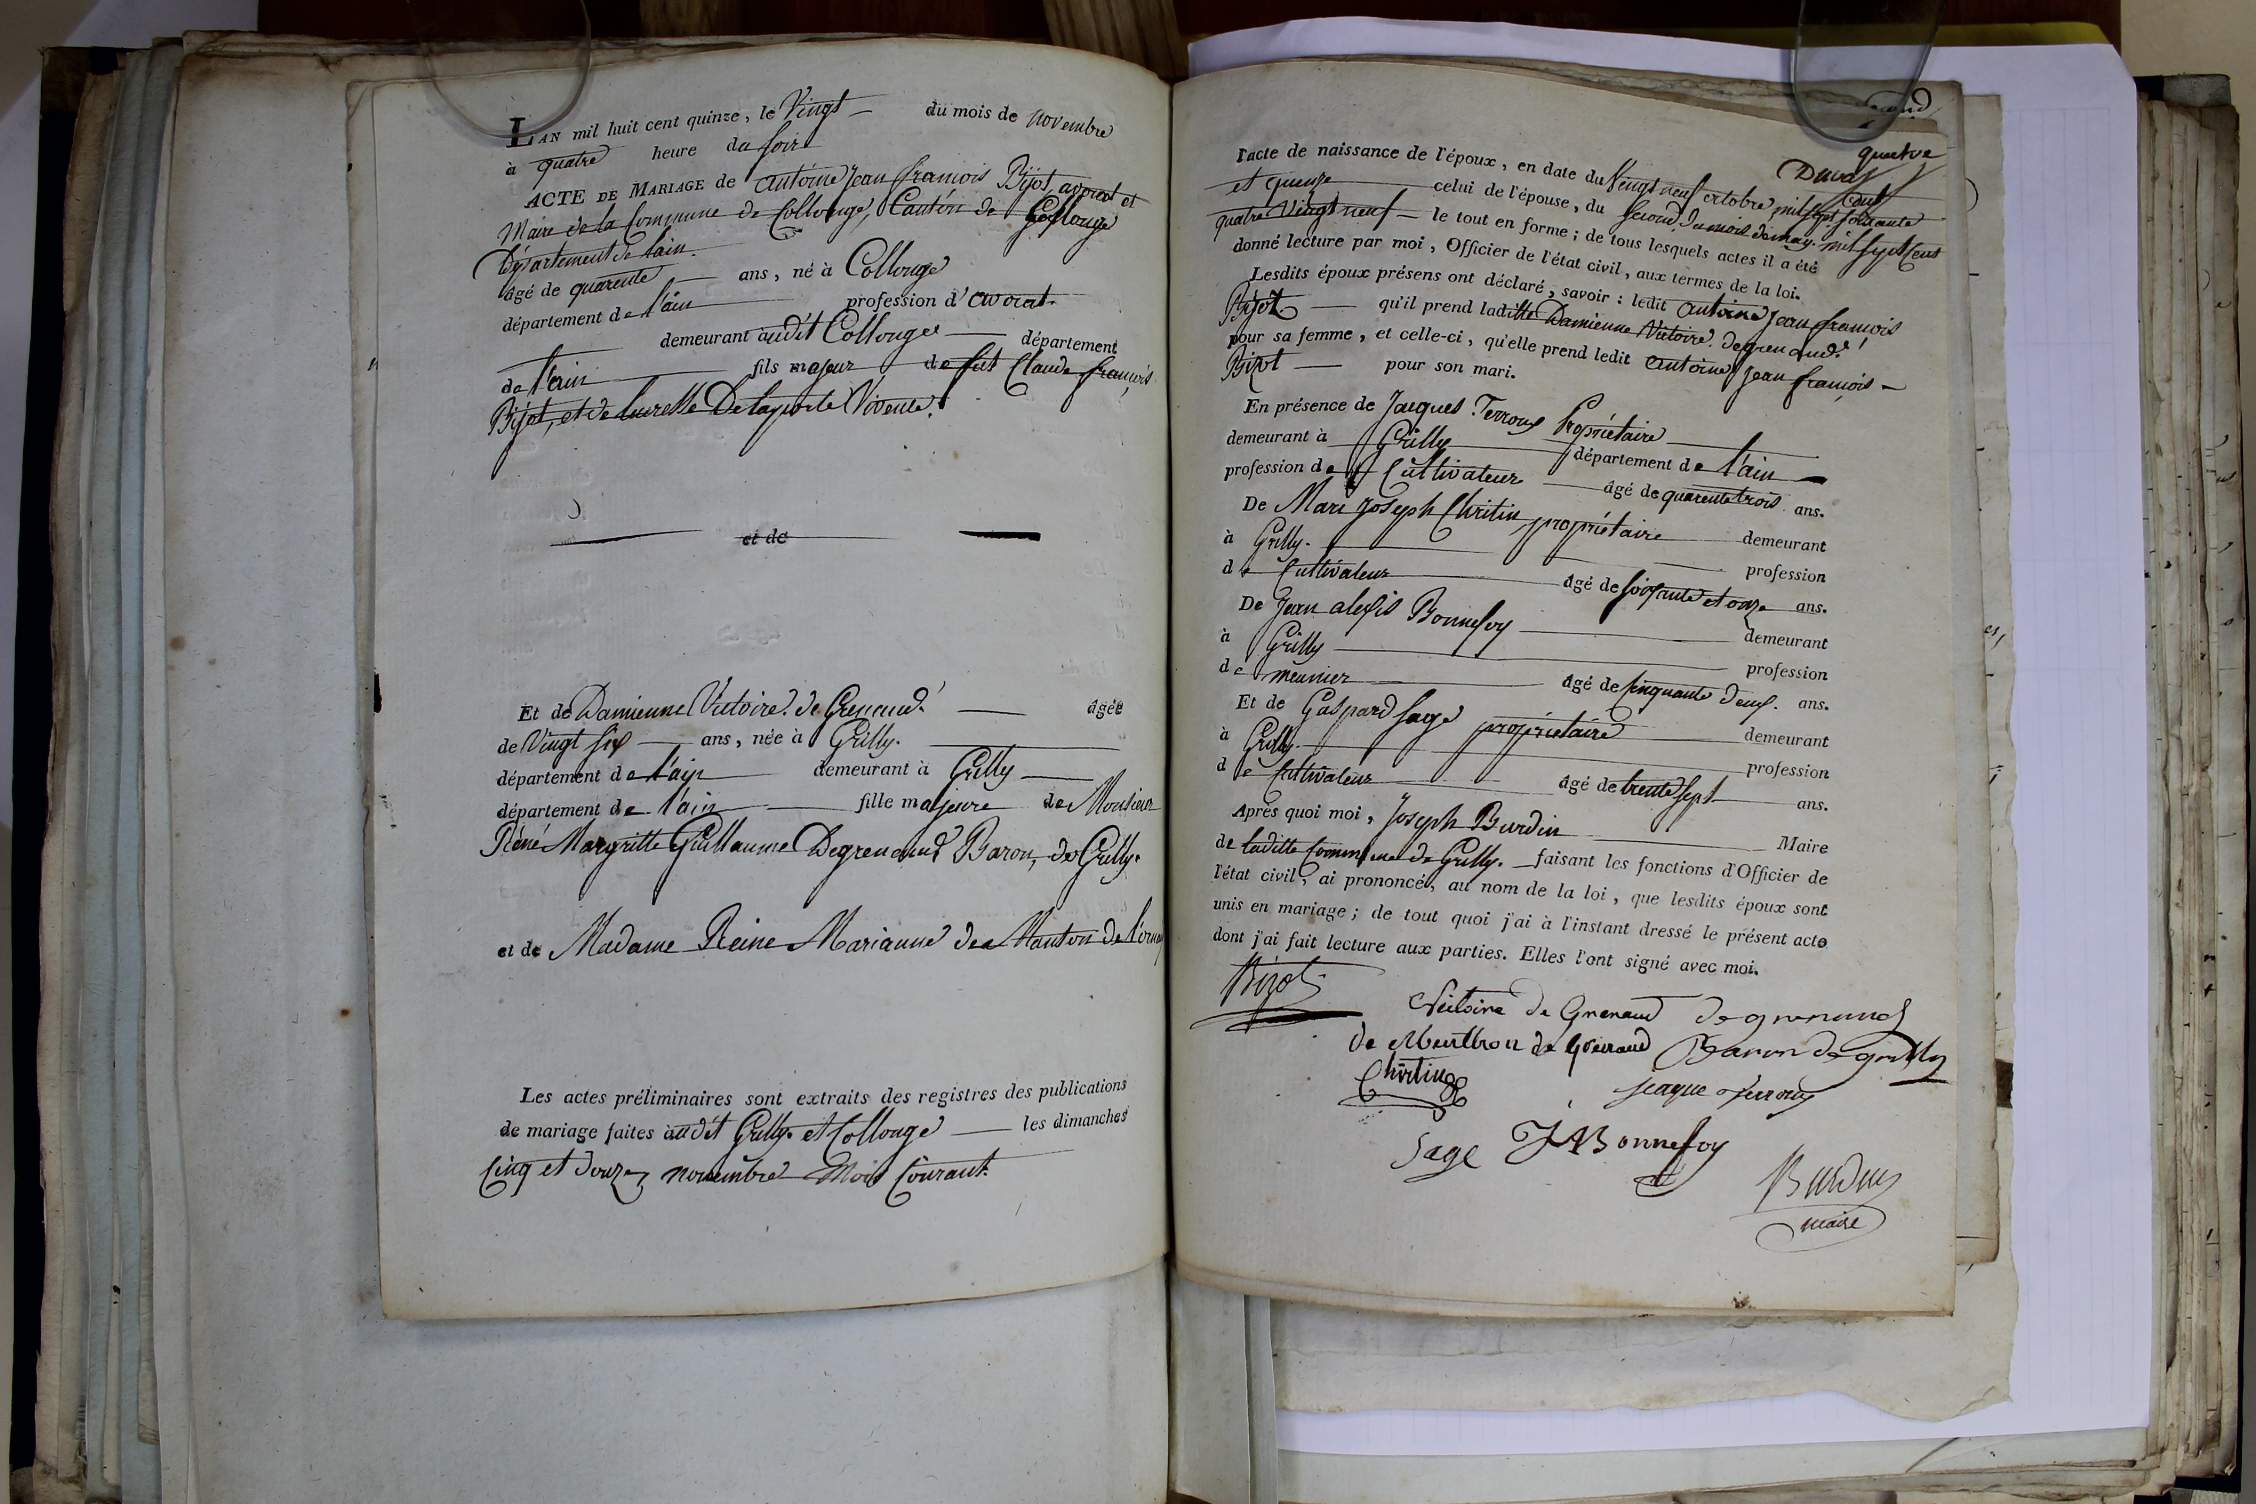 LAN mil huit cent quinze, le Vingt du mois de novembre
à quatre heure du soir
ACTE DE MARIAGE de antoine jean francois Bizot avocat et
Maire de la Commune de Collonge, Canton de Collonge
Département de lain.
âgé de quarente ans, né à Collonge
département de l'ain profession d'avocat.
demeurant audit Collonge département
de l'ain fils majeur de fut Claude françois
Bizot, et de Delaporte Vivente.
et de
Et de Damienne Victoire de Grenaud âgée
de Vingt six ans, née à Grilly.
département de l'ain demeurant à Grilly
département de l'ain fille majeure de Monsieur
Réné Margritte Guillaume Degrenaud Baron, de Grilly.
et de Madame Reine Marianne de
Les actes préliminaires sont extraits des registres des publications
de mariage faites audit Grilly et Collonge les dimanches
Cinq et douze novembre Mois Courant.
quatre
l'acte de naissance de l'époux, en date du Vingt neuf octobre mil sept cent soixante
et quenze celui de l'épouse, du second du mois de may mil sept Cent
quatre Vingt neuf le tout en forme; de tous lesquels actes il a été
donné lecture par moi, Officier de l'état civil, aux termes de la loi.
Lesdits époux présens ont déclaré, savoir: ledit antoine jean françois
Bizot qu'il prend laditte Damienne Victoire degrenaud
pour sa femme, et celle-ci, qu'elle prend ledit antoine jean françois
Bizot pour son mari.
En présence de Jacques Terroux Propriétaire
demeurant à Grilly département de l'ain
profession de Cultivateur âgé de quarente trois ans.
De Marc Joseph Chritin propriétaire demeurant
à Grilly. profession
de Cultivateur âgé de soixante et onze ans.
De Jean alexis Bonnefoy demeurant
à Grilly profession
de meunier âgé de Cinquante deux ans.
Et de Gaspard Sage propriétaire demeurant
à Grilly. profession
de Cultivateur âgé de trente sept ans.
Après quoi moi, Joseph Burdin Maire
de laditte Commune de Grilly. faisant les fonctions d'Officier de
l'état civil, ai prononcé, au nom de la loi, que lesdits époux sont
unis en mariage; de tout quoi j'ai à l'instant dressé le présent acte
dont j'ai fait lecture aux parties. Elles l'ont signé avec moi.
Bizot
Victoire de Grenaud degrenaud
de Menthon de Grenaud Baron de grilly
Chritin
jaque Terroux
Sage JABonnefoy
Burdin
maire